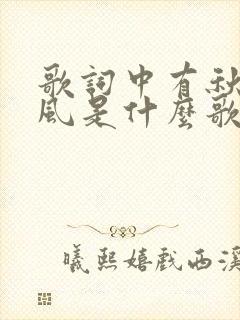 歌詞中有秋
風是什麼歌
曦熙嬉戲西溪